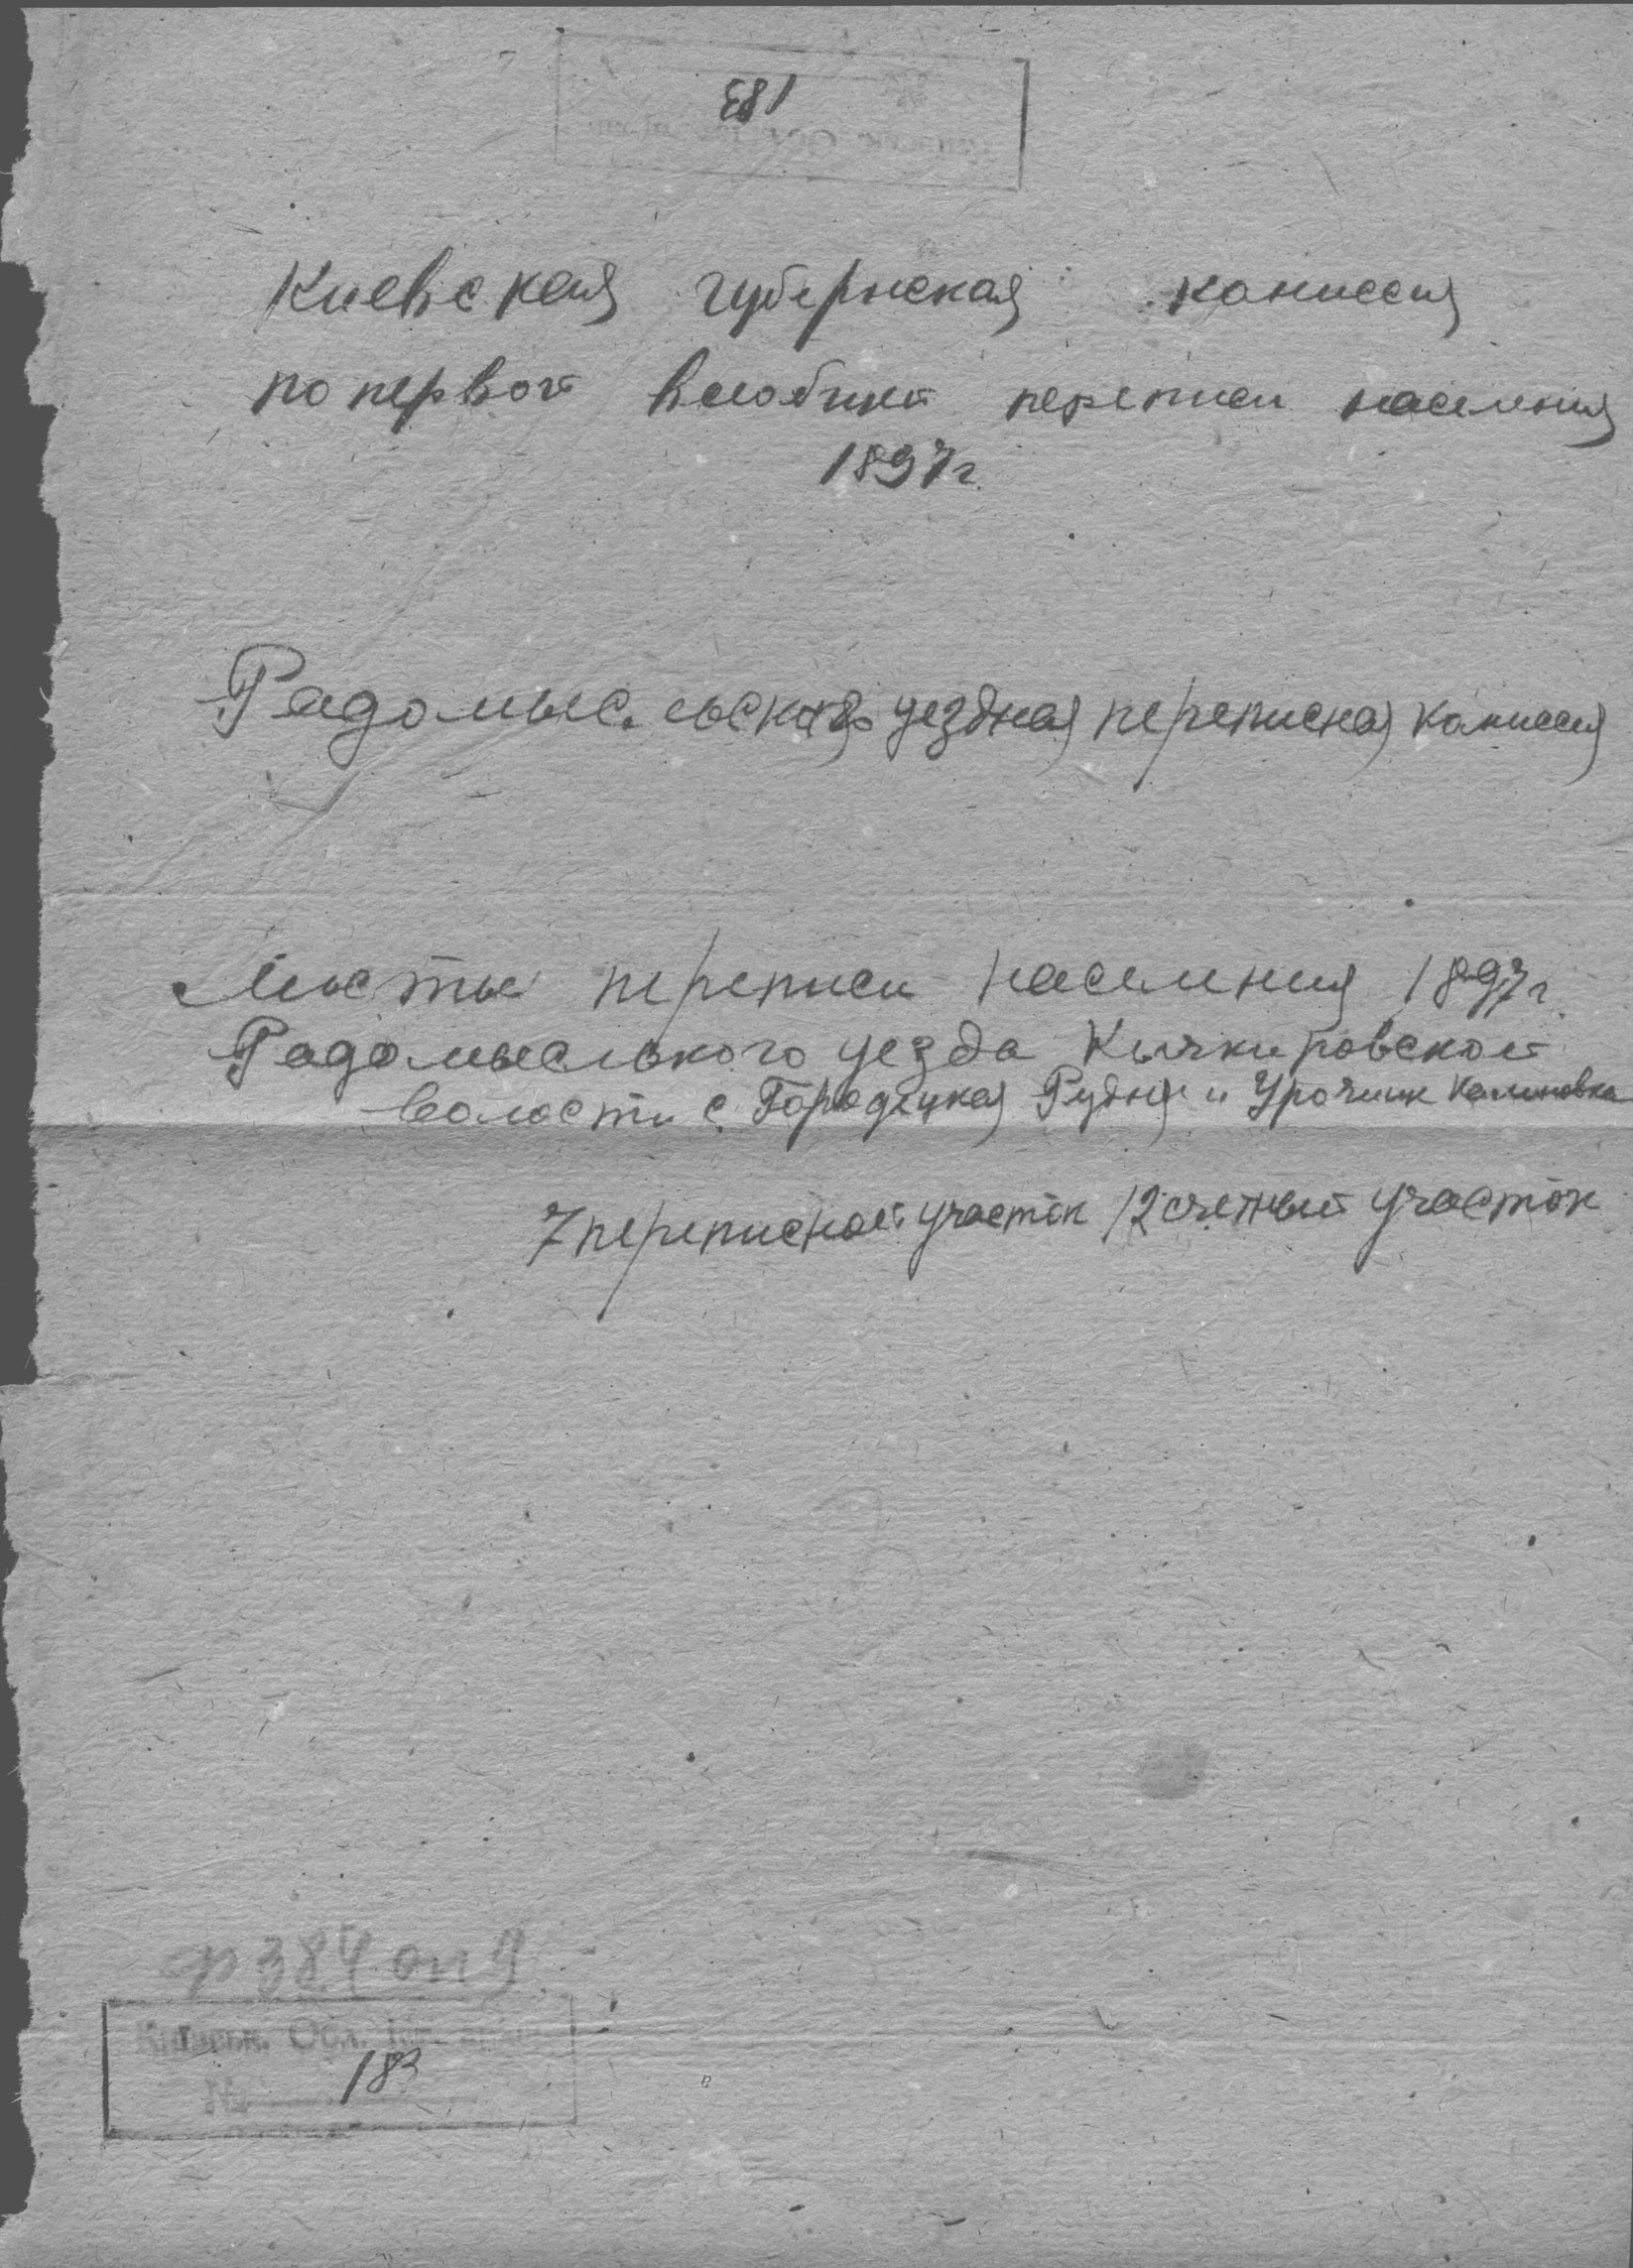 183
Киевская губернская комиссия
по первой всеобщей переписи населения
1897г.
Радомысльская уездная переписная комиссия
Листы переписи населения 1897г.
Радомысльского уезда Кичкировской
волости с. Городецкая Рудня и Урочищ Калиновка
7 переписной участок 12 счетный участок
ф 384 оп 9
Обл.
№ 183